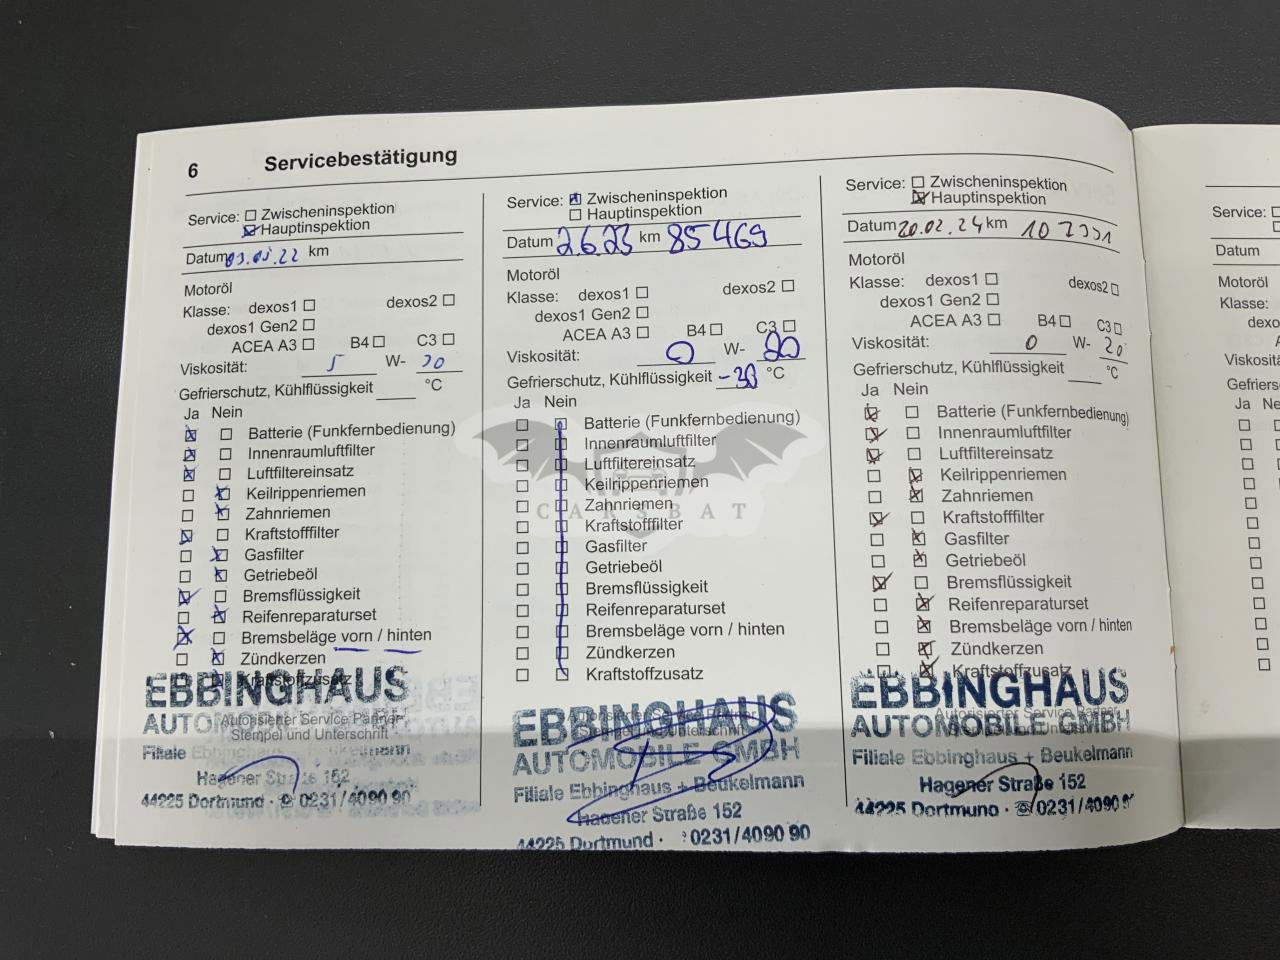 6 Servicebestätigung
Service: Zwischeninspektion
Hauptinspektion
Datum km
Motoröl
Klasse: dexos1 dexos2
dexos1 Gen2
ACEA A3 B4 C3
Viskosität: 5 W- 30
Gefrierschutz, Kühlflüssigkeit °C
Ja Nein
Batterie (Funkfernbedienung)
Innenraumluftfilter
Luftfiltereinsatz
Keilrippenriemen
Zahnriemen
Kraftstofffilter
Gasfilter
Getriebeöl
Bremsflüssigkeit
Reifenreparaturset
Bremsbeläge vorn / hinten
Zündkerzen
Kraftstoffzusatz
EBBINGHAUS
AUTOMOBILE GMBH
Autorisierter Service Partner
Stempel und Unterschrift
Filiale Ebbinghaus + Beukelmann
Hagener Straße 152
44225 Dortmund · ☎ 0231/4090 90
Service: Zwischeninspektion
Hauptinspektion
Datum 2.6.23 km 85469
Motoröl
Klasse: dexos1 dexos2
dexos1 Gen2
ACEA A3 B4 C3
Viskosität: 0 W- 20
Gefrierschutz, Kühlflüssigkeit -30 °C
Ja Nein
Batterie (Funkfernbedienung)
Innenraumluftfilter
Luftfiltereinsatz
Keilrippenriemen
Zahnriemen
Kraftstofffilter
Gasfilter
Getriebeöl
Bremsflüssigkeit
Reifenreparaturset
Bremsbeläge vorn / hinten
Zündkerzen
Kraftstoffzusatz
EBBINGHAUS
AUTOMOBILE GMBH
Filiale Ebbinghaus + Beukelmann
Hagener Straße 152
44225 Dortmund · 0231/4090 90
Service: Zwischeninspektion
Hauptinspektion
Datum 20.02.24 km 107331
Motoröl
Klasse: dexos1 dexos2
dexos1 Gen2
ACEA A3 B4 C3
Viskosität: 0 W- 20
Gefrierschutz, Kühlflüssigkeit °C
Ja Nein
Batterie (Funkfernbedienung)
Innenraumluftfilter
Luftfiltereinsatz
Keilrippenriemen
Zahnriemen
Kraftstofffilter
Gasfilter
Getriebeöl
Bremsflüssigkeit
Reifenreparaturset
Bremsbeläge vorn / hinten
Zündkerzen
Kraftstoffzusatz
EBBINGHAUS
AUTOMOBILE GMBH
Autorisierter Service Partner
Filiale Ebbinghaus + Beukelmann
Hagener Straße 152
44225 Dortmund · ☎ 0231/4090 9
Service:
Datum
Motoröl
Klasse:
dexo
Gefriers
Ja Ne
CARSBAT